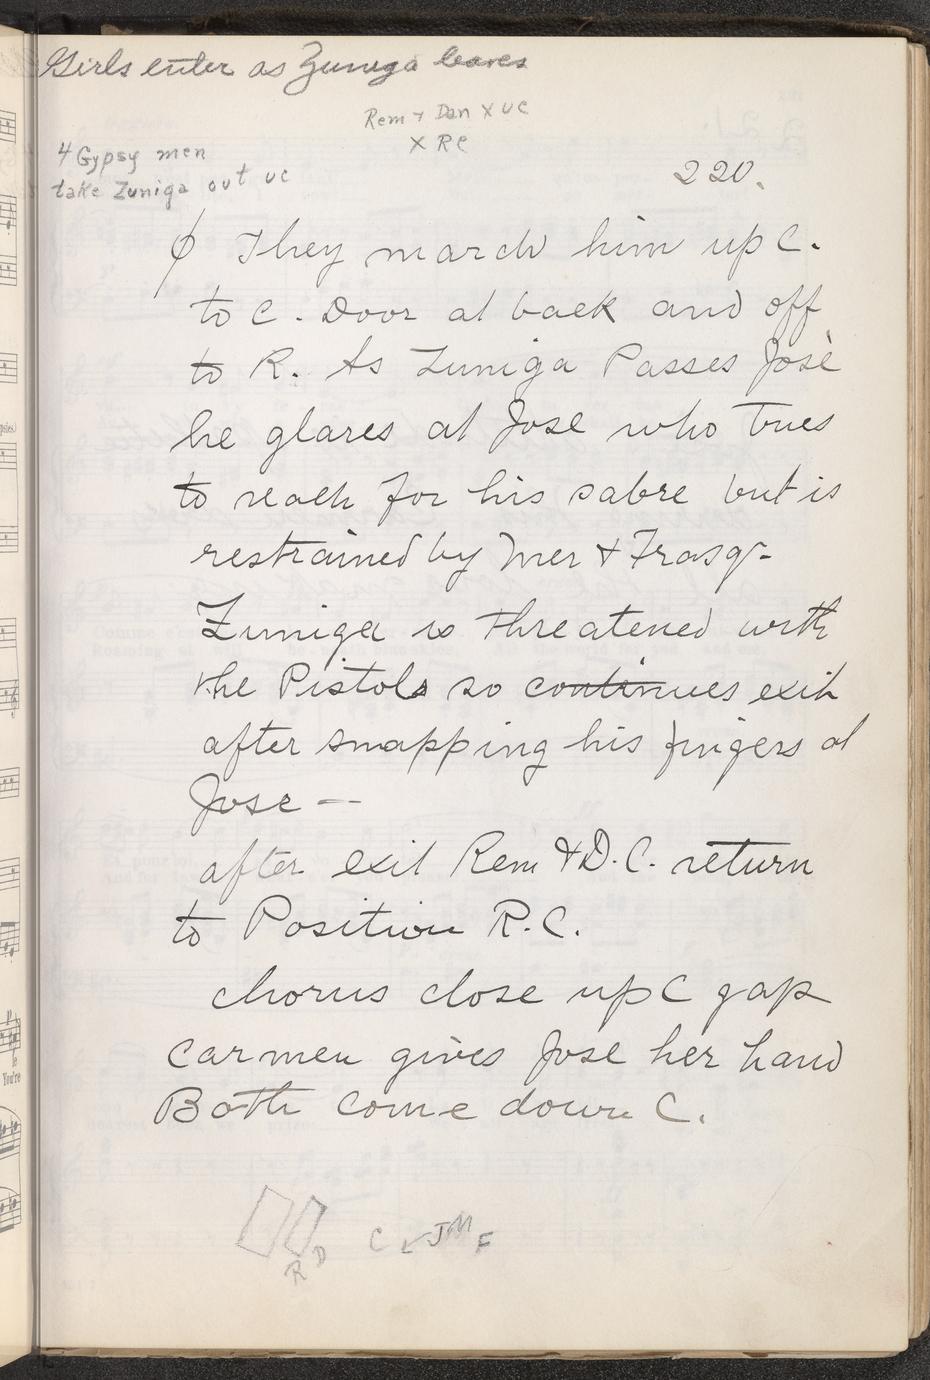 Girls enter as Zuniga leaves
Rem + Dan X UC
X RC
4 Gypsy men
take Zuniga out UC
220.
φ They march him up C.
to C. Door at back and off
to R. As Zuniga Passes José
he glares at Jose who tries
to reach for his sabre but is
restrained by Mer & Frasq-
Zuniga is threatened with
the Pistols so continues exit
after snapping his fingers at
Jose --
after exit Rem & D.C. return
to Position R.C.
chorus close up C gap
Carmen gives Jose her hand
Both come down C.
R D C ← J M F